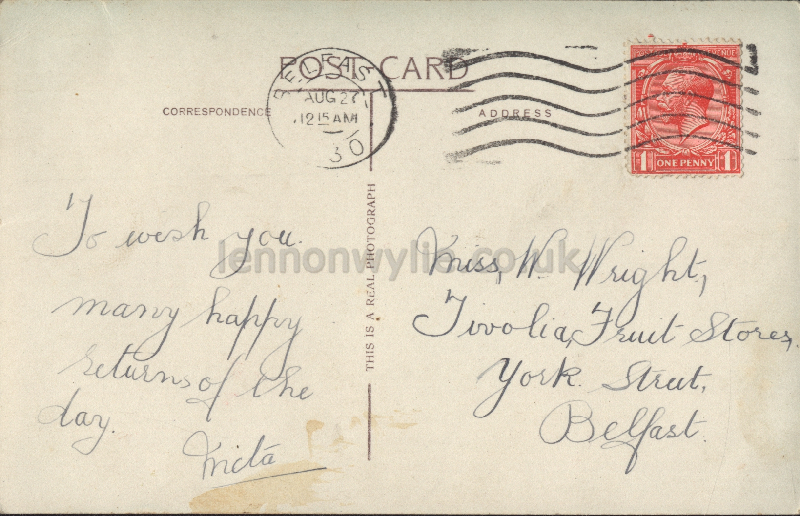 POST CARD
BELFAST
AUG 27
12 15 AM
30
CORRESPONDENCE
ADDRESS
ONE PENNY
1 1
THIS IS A REAL PHOTOGRAPH
lennonwylie.co.uk
To wish you.
many happy
returns of the
day.
Meta
Miss, W. Wright,
Tivolia, Fruit Stores,
York. Street,
Belfast.